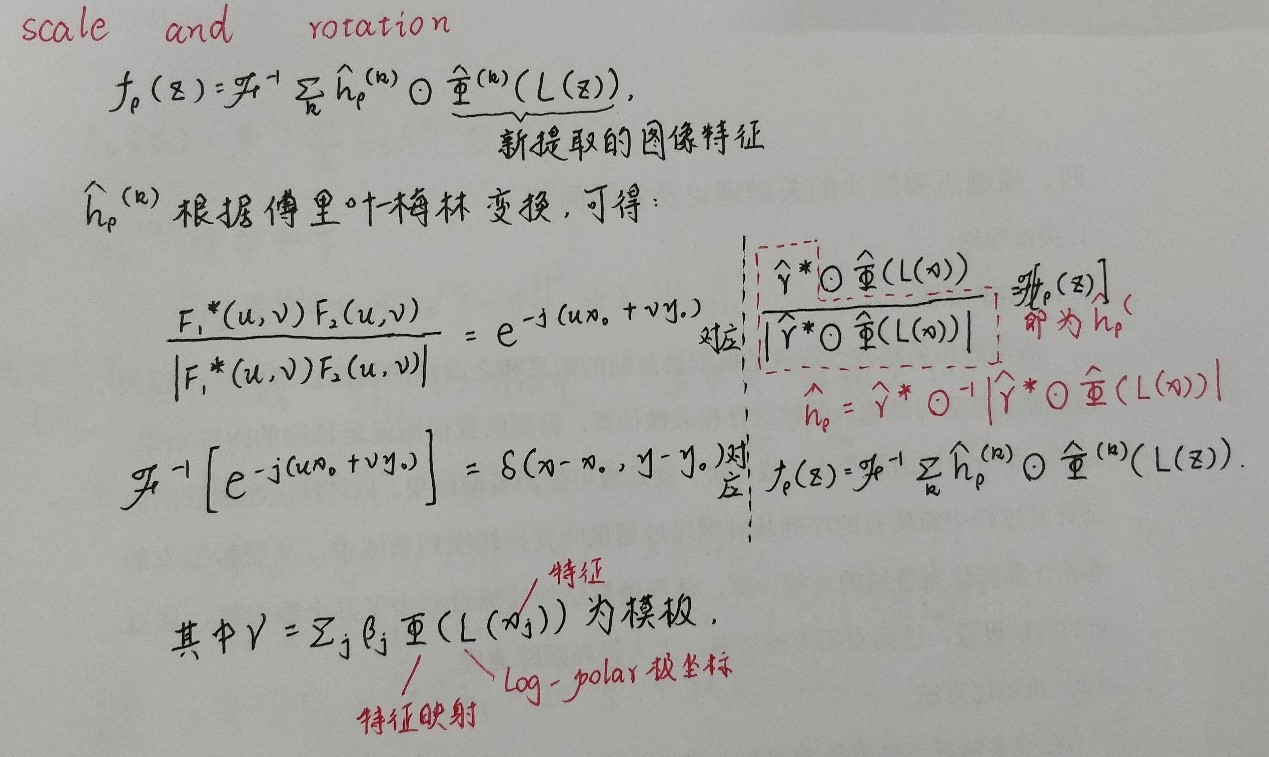 scale and rotation
f_ρ(z) = 𝓕⁻¹ Σ_k ĥ_ρ^(k) ⊙ Φ̂^(k)(L(z)),
新提取的图像特征
ĥ_ρ^(k) 根据傅里叶-梅林变换,可得:
F₁*(u,v)F₂(u,v) / |F₁*(u,v)F₂(u,v)| = e^{-j(ux₀+vy₀)} 对应
γ̂* ⊙ Φ̂(L(x)) / |γ̂* ⊙ Φ̂(L(x))| = 𝓕[f_ρ(z)]
即为 ĥ_ρ(
ĥ_ρ = γ̂* ⊙⁻¹ |γ̂* ⊙ Φ̂(L(x))|
𝓕⁻¹[e^{-j(ux₀+vy₀)}] = δ(x-x₀, y-y₀) 对应
f_ρ(z) = 𝓕⁻¹ Σ_k ĥ_ρ^(k) ⊙ Φ̂^(k)(L(z)).
特征
其中 γ = Σ_j β_j Φ(L(x_j)) 为模板.
Log-polar 极坐标
特征映射